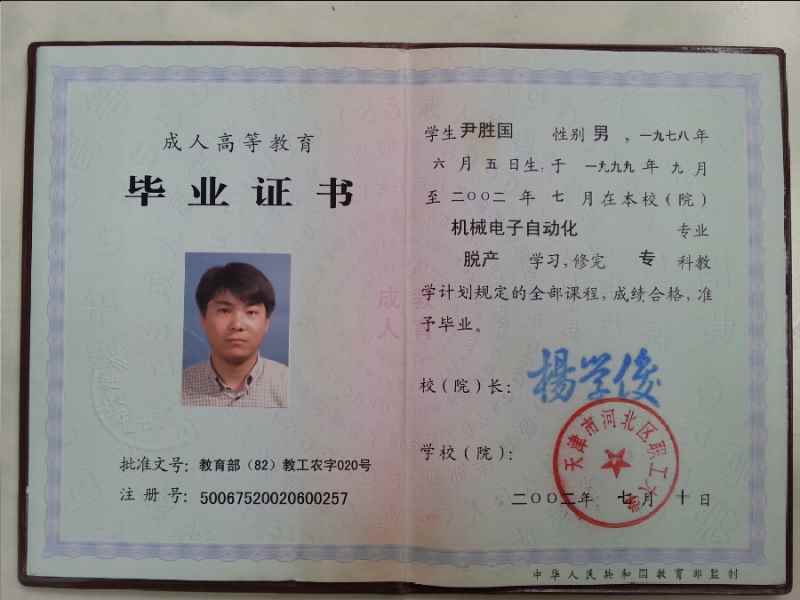 成人高等教育
毕业证书
批准文号：教育部（82）教工农字020号
注册号：50067520020600257
学生 尹胜国 性别 男 ，一九七八年
六月五日生，于 一九九九年 九月
至 二〇〇二年 七月在本校（院）
机械电子自动化 专业
脱产 学习，修完 专 科教
学计划规定的全部课程，成绩合格，准
予毕业。
校（院）长：杨学俊
学校（院）：
天津市河北区职工大学
二〇〇二年 七月 十日
中华人民共和国教育部监制